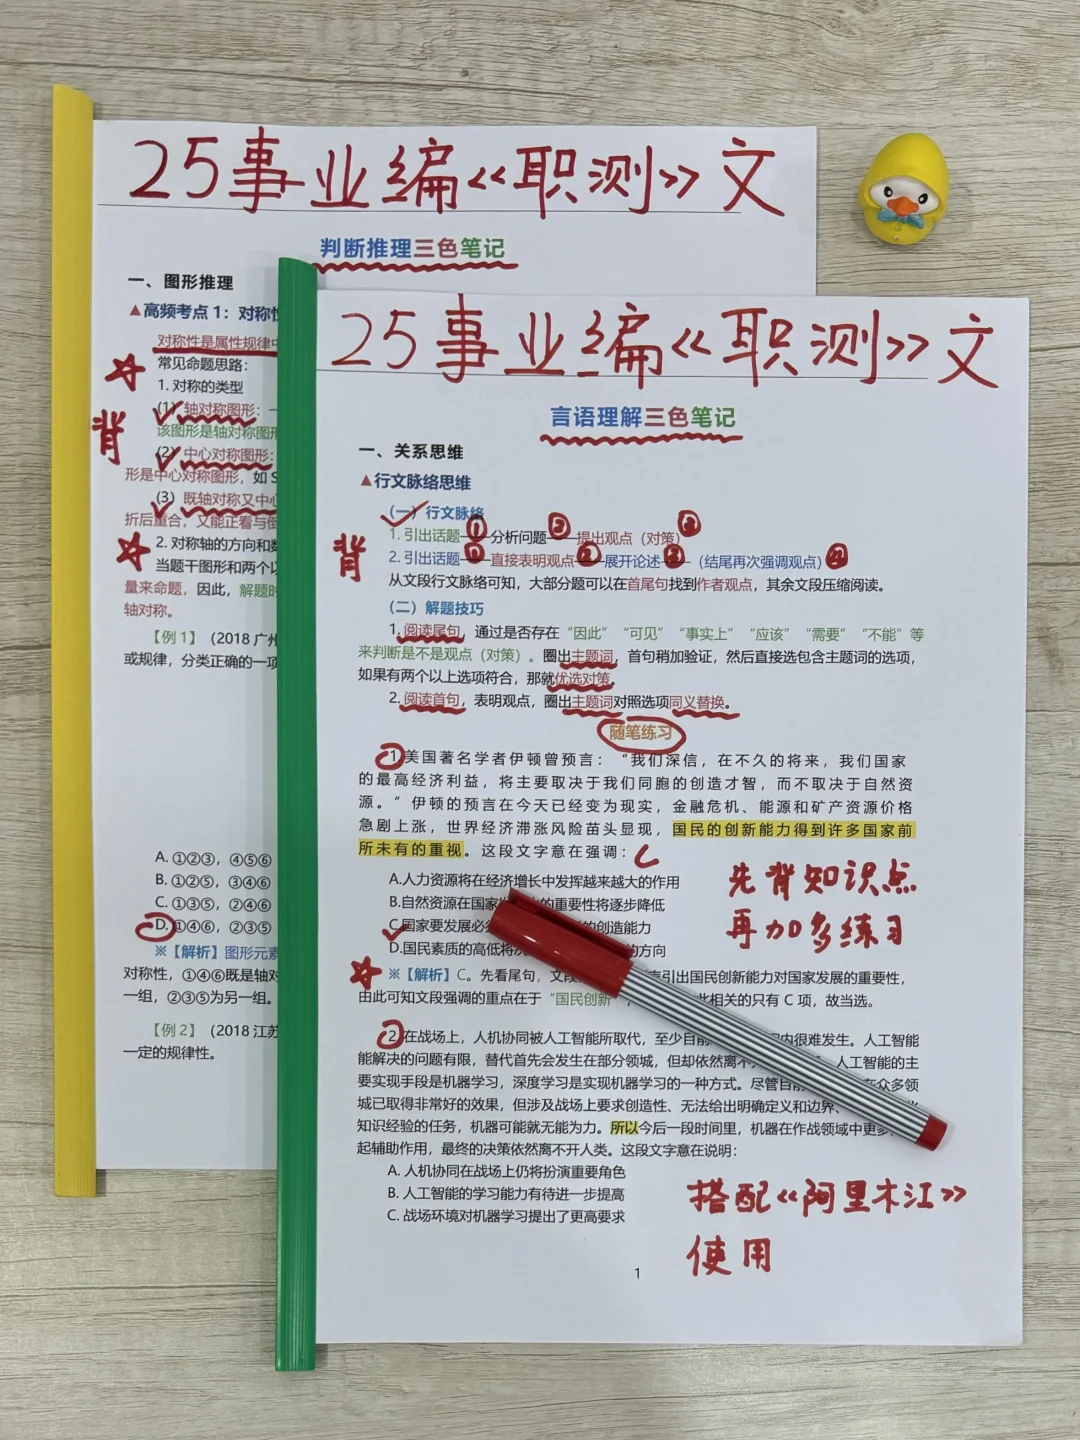 25事业编《职测》文
判断推理三色笔记
一、图形推理
▲高频考点1：对称性
对称性是属性规律中
常见命题思路：
1. 对称的类型
(1) 轴对称图形：一
该图形是轴对称图形
(2) 中心对称图形：
形是中心对称图形，如 S
(3) 既轴对称又中心
折后重合，又能正看与倒
2. 对称轴的方向和数
当题干图形和两个以
量来命题，因此，解题时
轴对称。
【例 1】（2018 广州
或规律，分类正确的一项
背
A. ①②③，④⑤⑥
B. ①②⑤，③④⑥
C. ①③⑤，②④⑥
D. ①④⑥，②③⑤
※【解析】图形元素
对称性，①④⑥既是轴对
一组，②③⑤为另一组。
【例 2】（2018 江苏
一定的规律性。
25事业编《职测》文
言语理解三色笔记
一、关系思维
▲行文脉络思维
（一）行文脉络
1. 引出话题——①分析问题②——提出观点（对策）③
2. 引出话题——①直接表明观点——②展开论述——③（结尾再次强调观点）④
背
从文段行文脉络可知，大部分题可以在首尾句找到作者观点，其余文段压缩阅读。
（二）解题技巧
1. 阅读尾句，通过是否存在“因此”“可见”“事实上”“应该”“需要”“不能”等
来判断是不是观点（对策）。圈出主题词，首句稍加验证，然后直接选包含主题词的选项，
如果有两个以上选项符合，那就优选对策。
2. 阅读首句，表明观点，圈出主题词对照选项同义替换。
随笔练习
1.美国著名学者伊顿曾预言：“我们深信，在不久的将来，我们国家
的最高经济利益，将主要取决于我们同胞的创造才智，而不取决于自然资
源。”伊顿的预言在今天已经变为现实，金融危机、能源和矿产资源价格
急剧上涨，世界经济滞涨风险苗头显现，国民的创新能力得到许多国家前
所未有的重视。这段文字意在强调：C
A.人力资源将在经济增长中发挥越来越大的作用
B.自然资源在国家 的重要性将逐步降低
C.国家要发展必 的创造能力
D.国民素质的高低将 的方向
先背知识点
再加多练习
※【解析】C。先看尾句，文段 引出国民创新能力对国家发展的重要性，
由此可知文段强调的重点在于“国民创新 相关的只有 C 项，故当选。
2.在战场上，人机协同被人工智能所取代，至少目前 内很难发生。人工智能
能解决的问题有限，替代首先会发生在部分领城，但却依然离不 人工智能的主
要实现手段是机器学习，深度学习是实现机器学习的一种方式。尽管目前 在众多领
城已取得非常好的效果，但涉及战场上要求创造性、无法给出明确定义和边界、
知识经验的任务，机器可能就无能为力。所以今后一段时间里，机器在作战领域中更多
起辅助作用，最终的决策依然离不开人类。这段文字意在说明：
A. 人机协同在战场上仍将扮演重要角色
B. 人工智能的学习能力有待进一步提高
C. 战场环境对机器学习提出了更高要求
搭配《阿里木江》
使用
1